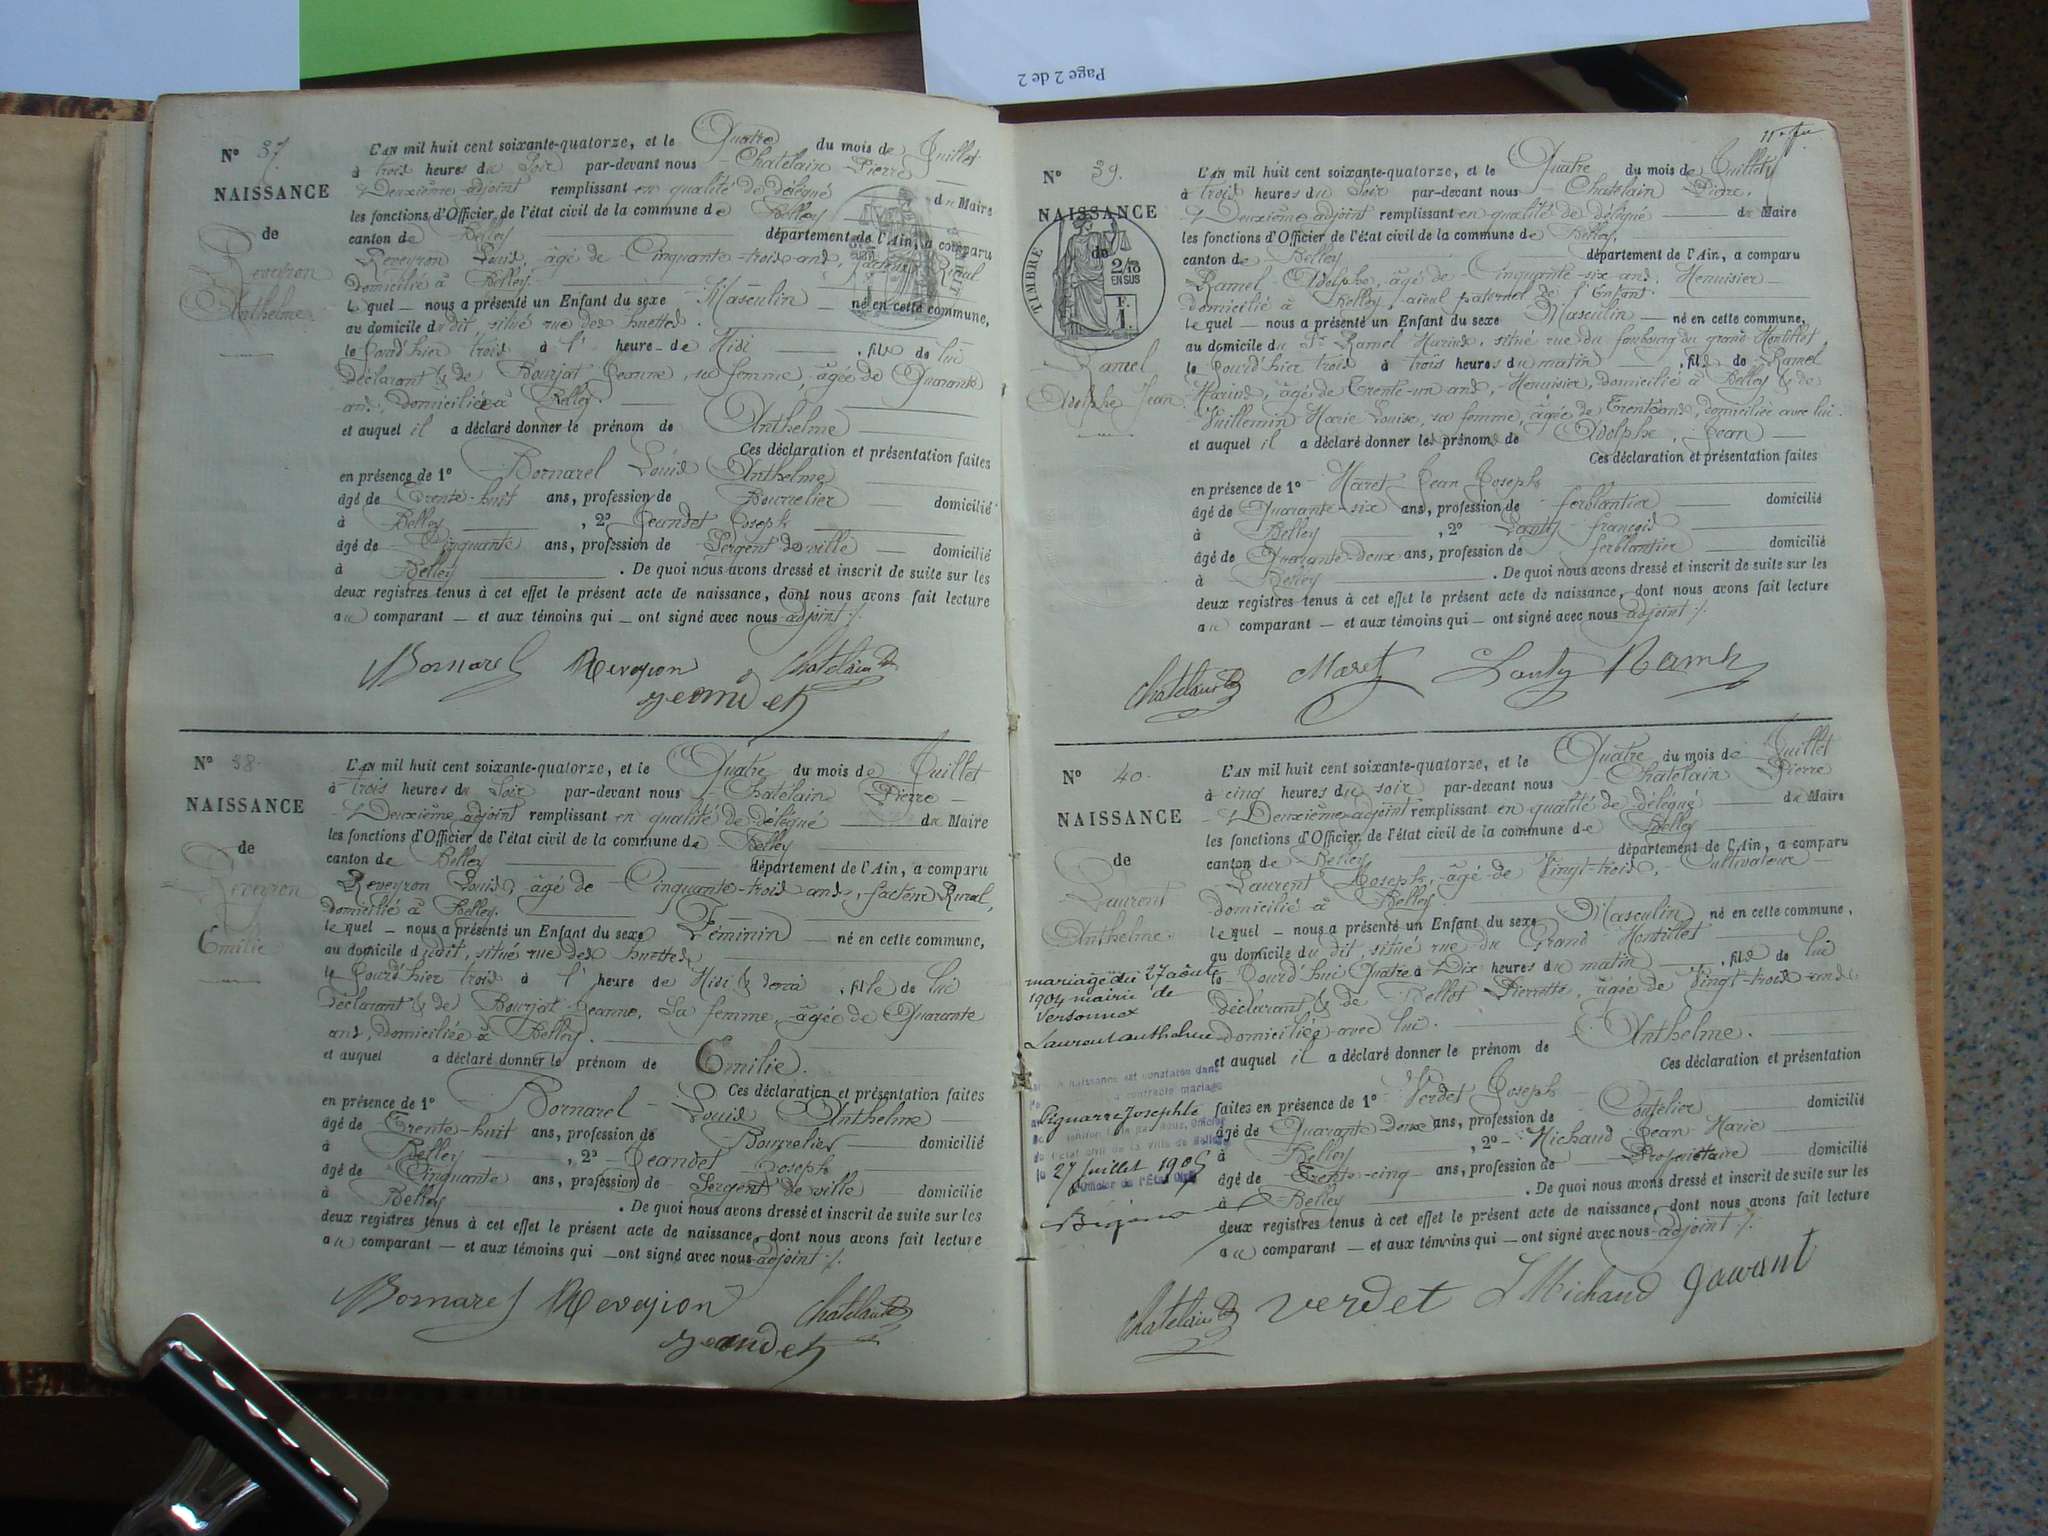 Page 2 de 2
N° 37
NAISSANCE
de
Reveyron
Anthelme.
L'AN mil huit cent soixante-quatorze, et le Quatre du mois de Juillet
à trois heures du Soir par-devant nous Chatelain Pierre
Deuxième adjoint remplissant en qualité de délégué du Maire
les fonctions d'Officier de l'état civil de la commune de Belley
canton de Belley département de l'Ain, a comparu
Reveyron Louis, âgé de Cinquante-trois ans, facteur Rural
domicilié à Belley.
lequel nous a présenté un Enfant du sexe Masculin né en cette commune,
au domicile dudit, situé rue des huettes.
le jourd'hier trois à l' heure de Midi , fils de lui
déclarant & de Bourjat Jeanne, sa femme, âgée de Quarante
ans, domiciliée à Belley.
et auquel il a déclaré donner le prénom de Anthelme
Ces déclaration et présentation faites
en présence de 1° Bornarel Louis Anthelme
âgé de Trente-huit ans, profession de Bourrelier domicilié
à Belley , 2° Jeandet Joseph
âgé de Cinquante ans, profession de Sergent de ville domicilié
à Belley . De quoi nous avons dressé et inscrit de suite sur les
deux registres tenus à cet effet le présent acte de naissance, dont nous avons fait lecture
au comparant — et aux témoins qui — ont signé avec nous adjoint ./.
Bornarel Reveyron Chatelain
Jeandet
N° 38
NAISSANCE
de
Reveyron
Emilie
L'AN mil huit cent soixante-quatorze, et le Quatre du mois de Juillet
à trois heures du Soir par-devant nous Chatelain Pierre
Deuxième adjoint remplissant en qualité de délégué du Maire
les fonctions d'Officier de l'état civil de la commune de Belley
canton de Belley département de l'Ain, a comparu
Reveyron Louis, âgé de Cinquante-trois ans, facteur Rural,
domicilié à Belley.
lequel — nous a présenté un Enfant du sexe Féminin — né en cette commune,
au domicile dudit, situé rue des huettes
le jourd'hier trois à l' heure de Midi & demi , fille de lui
déclarant & de Bourjat Jeanne, Sa femme, âgée de Quarante
ans, domiciliée à Belley.
et auquel a déclaré donner le prénom de Emilie.
Ces déclaration et présentation faites
en présence de 1° Bornarel Louis Anthelme
âgé de Trente-huit ans, profession de Bourrelier domicilié
à Belley , 2° Jeandet Joseph
âgé de Cinquante ans, profession de Sergent de ville domicilié
à Belley . De quoi nous avons dressé et inscrit de suite sur les
deux registres tenus à cet effet le présent acte de naissance, dont nous avons fait lecture
au comparant — et aux témoins qui — ont signé avec nous adjoint ./.
Bornarel Reveyron Chatelain
Jeandet
N° 39.
NAISSANCE
de
TIMBRE
2/10
EN SUS
F.
1.
Ramel
Adolphe Jean
L'AN mil huit cent soixante-quatorze, et le Quatre du mois de Juillet
à trois heures du Soir par-devant nous Chatelain Pierre,
Deuxième adjoint remplissant en qualité de délégué du Maire
les fonctions d'Officier de l'état civil de la commune de Belley,
canton de Belley département de l'Ain, a comparu
Ramel Adolphe, âgé de Cinquante-six ans, Menuisier
domicilié à Belley, aïeul paternel de l'Enfant.
lequel — nous a présenté un Enfant du sexe Masculin — né en cette commune,
au domicile du Sr Ramel Marius, situé rue du faubourg du grand Montillet
le jourd'hier trois à trois heures du matin , fils de Ramel
Marius, âgé de Trente-un ans, Menuisier, domicilié à Belley & de
Vuillemin Marie Louise, sa femme, âgée de Trente ans, domiciliée avec lui.
et auquel il a déclaré donner les prénoms de Adolphe, Jean
Ces déclaration et présentation faites
en présence de 1° Maret Jean Joseph
âgé de Quarante-six ans, profession de ferblantier domicilié
à Belley , 2° Lanty françois
âgé de Quarante-deux ans, profession de ferblantier domicilié
à Belley . De quoi nous avons dressé et inscrit de suite sur les
deux registres tenus à cet effet le présent acte de naissance, dont nous avons fait lecture
au comparant — et aux témoins qui — ont signé avec nous adjoint ./.
Chatelain Maret Lanty Ramel
N° 40.
NAISSANCE
de
Laurent
Anthelme.
mariage du 27 août
1904 mairie de
Versonnex
Laurent anthelme
naissance est constatée dans
contracté mariage
Josephte
Officier
de l'état civil de la Ville de Belley
le 27 Juillet 1905
L'Officier de l'État Civil
L'AN mil huit cent soixante-quatorze, et le Quatre du mois de Juillet
à cinq heures du soir par-devant nous Chatelain Pierre
Deuxième adjoint remplissant en qualité de délégué du Maire
les fonctions d'Officier de l'état civil de la commune de Belley
canton de Belley département de l'Ain, a comparu
Laurent Joseph, âgé de Vingt-trois, Cultivateur
domicilié à Belley
lequel — nous a présenté un Enfant du sexe Masculin né en cette commune,
au domicile dudit, situé rue du Grand Montillet
le jourd'hui Quatre à Dix heures du matin , fils de lui
déclarant & de Bellot Pierrette, âgée de Vingt-trois ans
domiciliée avec lui.
et auquel il a déclaré donner le prénom de Anthelme.
Ces déclaration et présentation
faites en présence de 1° Verdet Joseph
âgé de Quarante deux ans, profession de Coutelier domicilié
à Belley , 2° Michaud Jean Marie
âgé de Trente-cinq ans, profession de Propriétaire domicilié
à Belley . De quoi nous avons dressé et inscrit de suite sur les
deux registres tenus à cet effet le présent acte de naissance, dont nous avons fait lecture
au comparant — et aux témoins qui — ont signé avec nous adjoint ./.
Chatelain Verdet Michaud Laurent